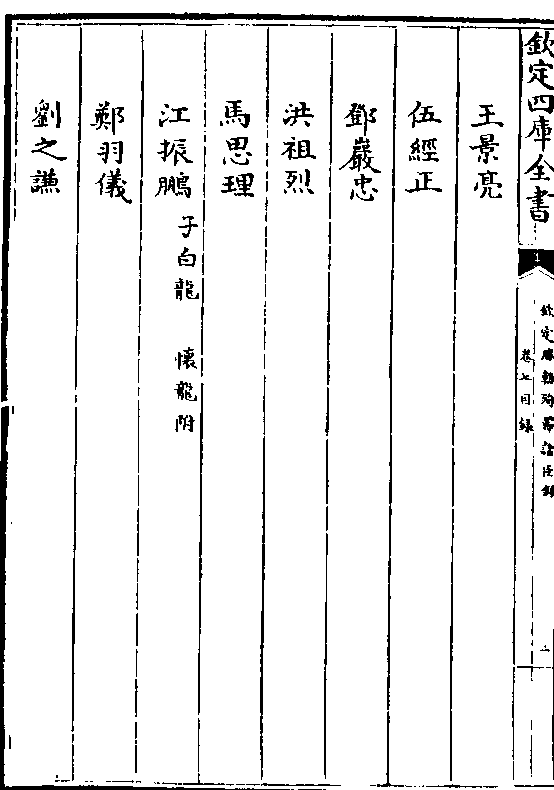 欽定四庫全書
欽定勝朝殉節諸臣錄
卷七目錄
王景亮
伍經正
鄧巖忠
洪祖烈
馬思理
江振鵬 子白龍 懷龍附
鄭羽儀
劉之謙